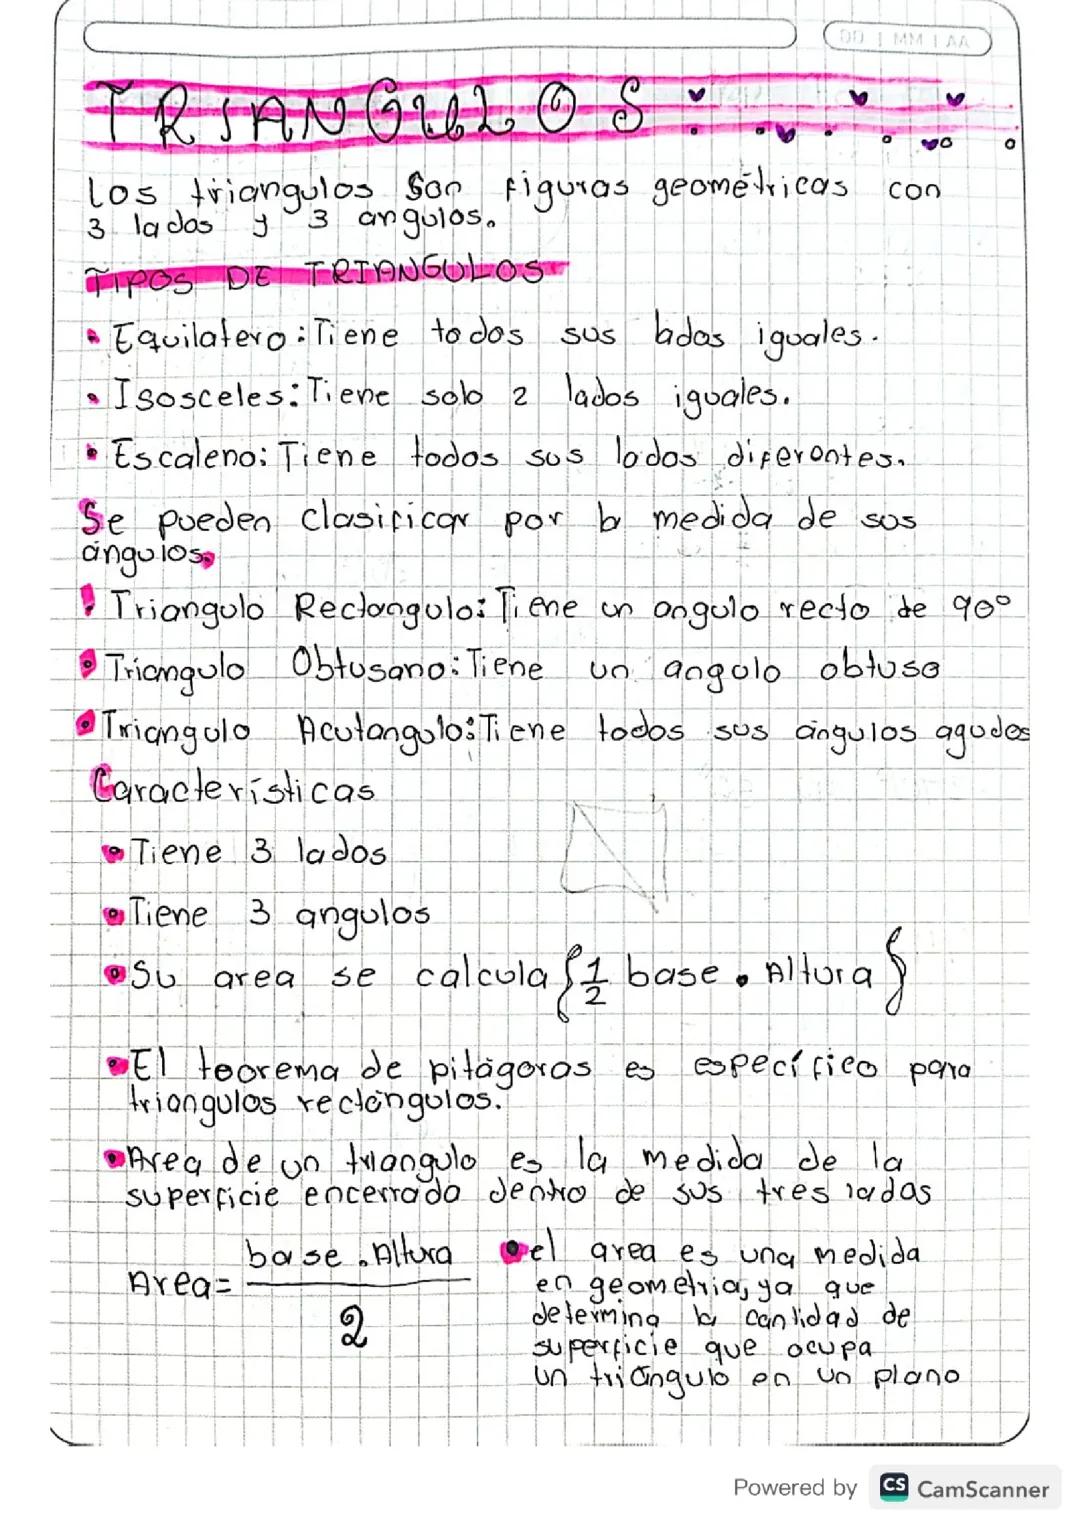 DD | MM | AA
TRIANGULOS
Los triangulos son figuras geométricas con
3 lados y 3 angulos.
TIPOS DE TRIANGULOS
• Equilatero: Tiene todos sus lados iguales.
• Isosceles: Tiene solo 2 lados iguales.
• Escaleno: Tiene todos sus lados diferentes.
Se pueden clasificar por la medida de sus
ángulos.
• Triangulo Rectangulo: Tiene un angulo recto de 90°
• Triangulo Obtusano: Tiene un angulo obtuso
• Triangulo Acutangulo: Tiene todos sus ángulos agudos
Características
• Tiene 3 lados
• Tiene 3 angulos
• Su area se calcula {1/2 base . Altura}
• El teorema de pitágoras es específico para
triangulos rectángulos.
• Area de un triangulo es la medida de la
superficie encerrada dentro de sus tres lados
Area= base . Altura
2
• el area es una medida
en geometria, ya que
determina la cantidad de
superficie que ocupa
un triángulo en un plano
Powered by CS CamScanner